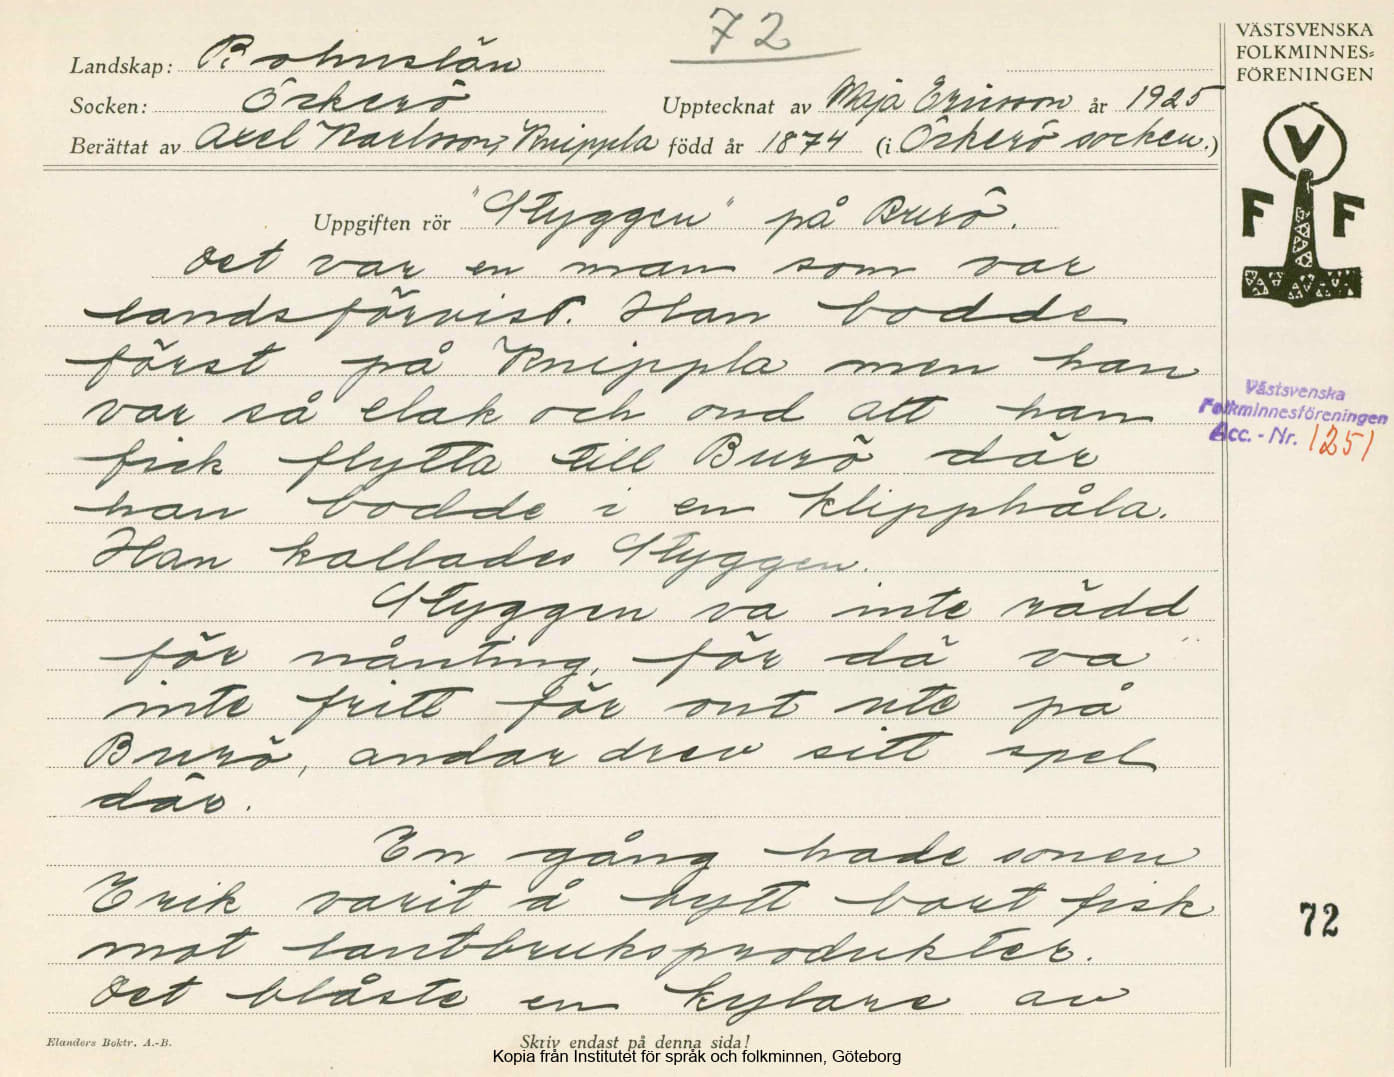 72
VÄSTSVENSKA
FOLKMINNES=
FÖRENINGEN
Landskap: Bohuslän
Socken: Öckerö
Upptecknat av Maja Ericson år 1925
Berättat av Axel Karlsson, Knippla född år 1874 (i Öckerö socken.)
V
F F
Uppgiften rör "Styggen" på Burö.
Det var en man som var
landsförvist. Han bodde
först på Knippla men han
var så elak och ond att han
fick flytta till Burö där
han bodde i en klipphåla.
Han kallades Styggen.
Styggen va inte rädd
för nånting, för dä va
inte fritt för ont ute på
Burö, andar drev sitt spel
där.
En gång hade sonen
Erik varit å bytt bort fisk
mot lantbruksprodukter.
Det blåste en kylare av
Västsvenska
Folkminnesföreningen
Acc. - Nr. 1251
72
Elanders Boktr. A.-B.
Skriv endast på denna sida!
Kopia från Institutet för språk och folkminnen, Göteborg